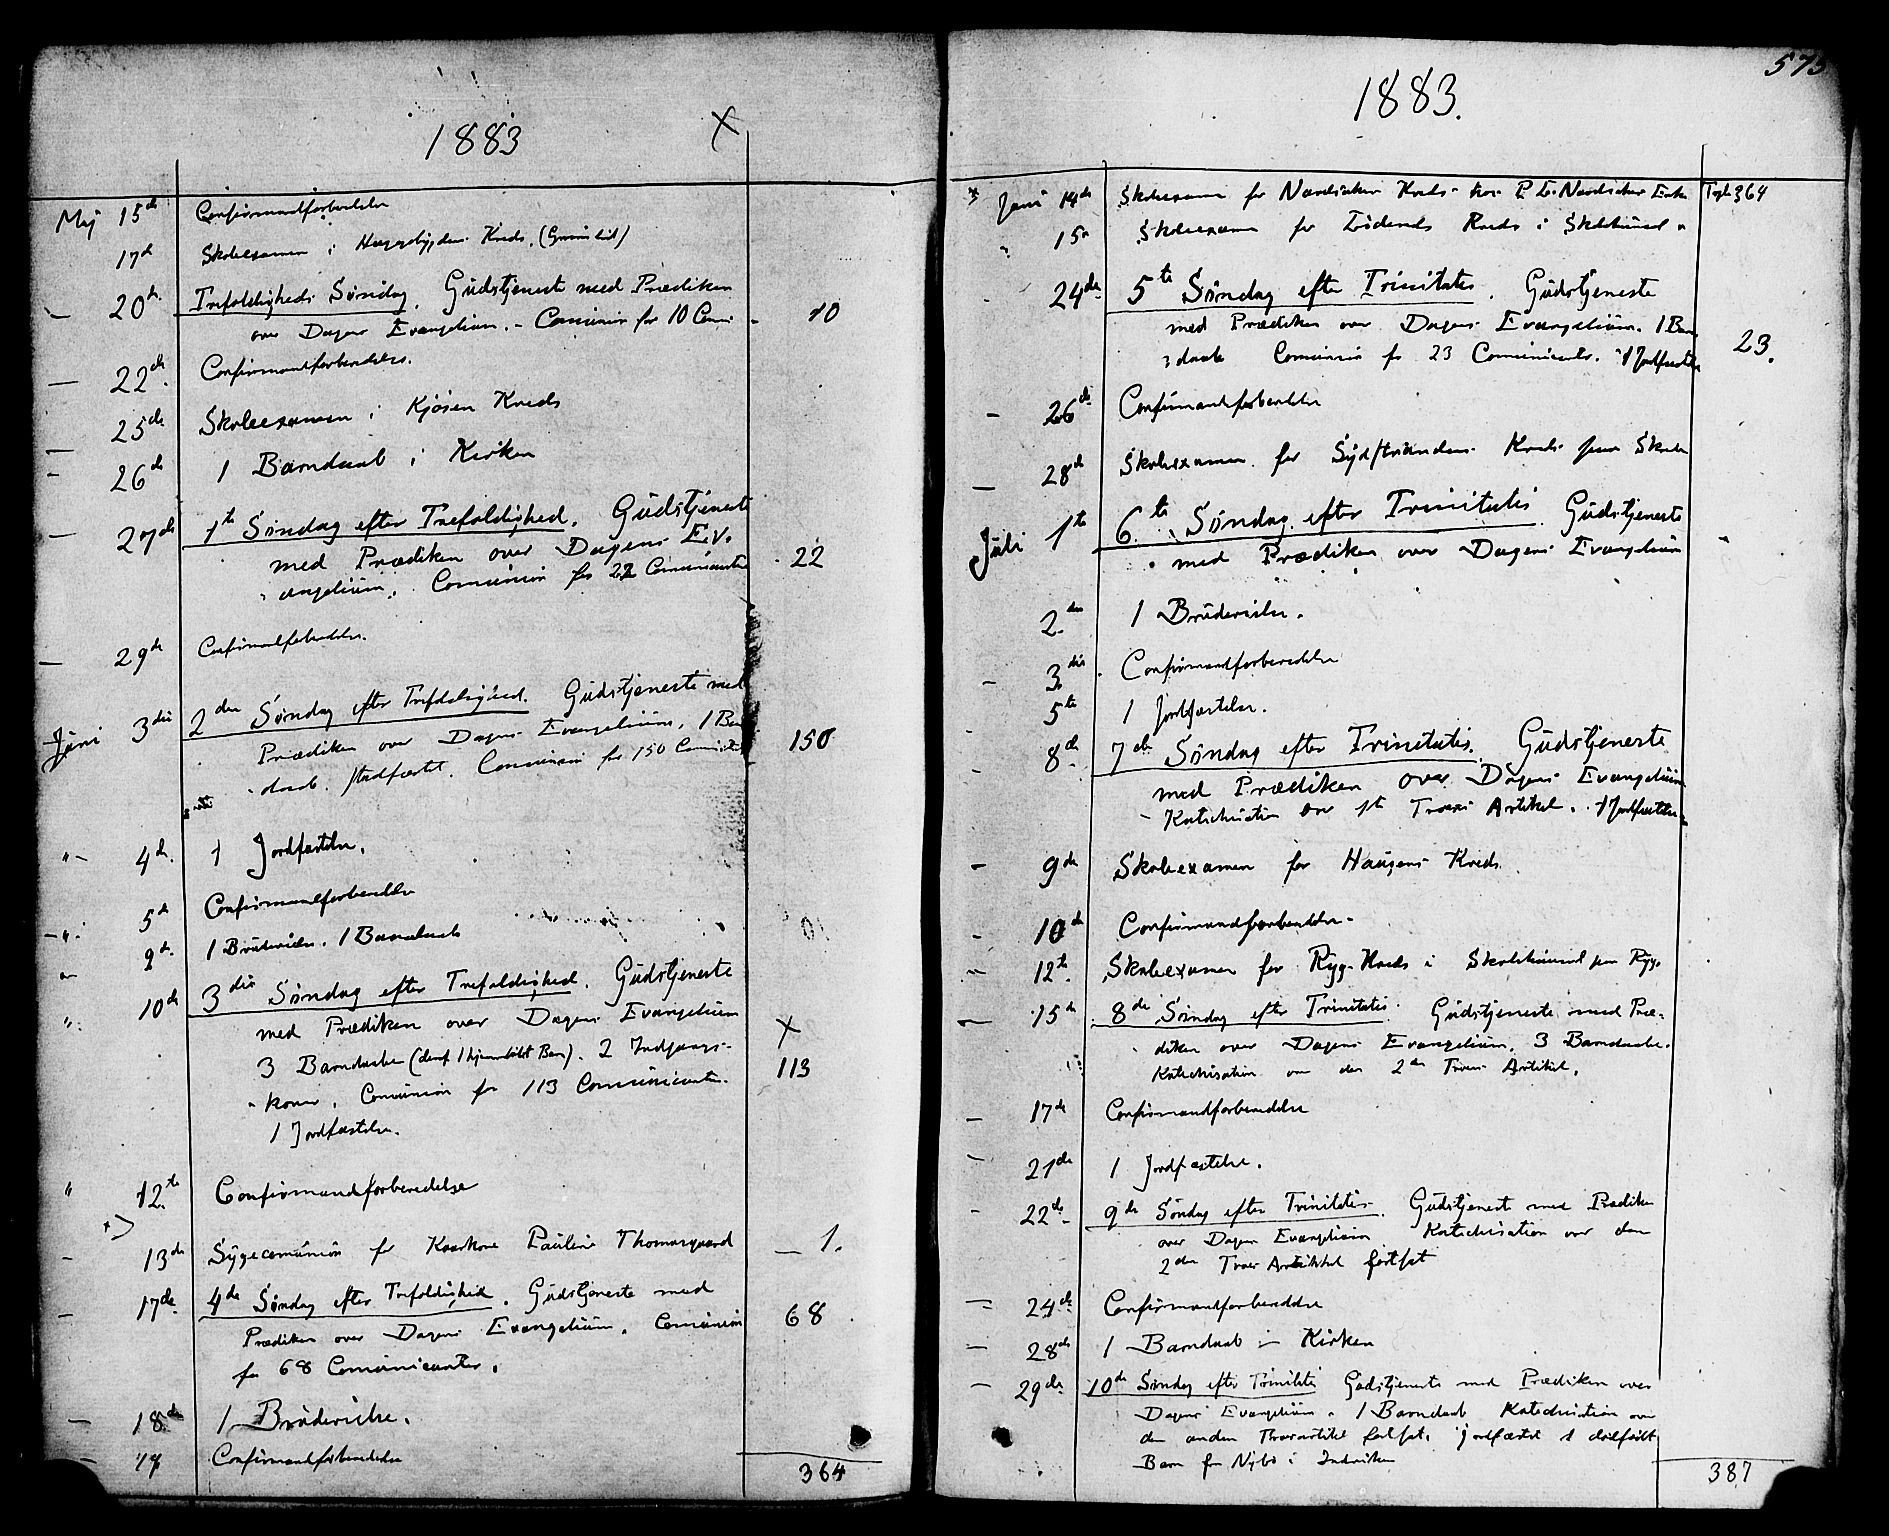 1883
Mej 15de Confirmandforberedelse
17de Skoleexamen i Hæggebygdens Kreds.
— 20de Trefoldigheds Søndag. Gudstjeneste med Prædiken
over Dagens Evangelium. – Comunion for 10 Comu- 10
— 22de Confirmandforberedelse.
— 25de Skoleexamen i Kjøsen Kreds
— 26de 1 Barndaab i Kirken
— 27de 1ste Søndag efter Trefoldighed. Gudstjeneste
med Prædiken over Dagens Ev.
angelium. Comunion for 22 Comunicanter 22
— 29de Confirmandforberedelse.
Juni 3die 2den Søndag efter Trefoldighed. Gudstjeneste med
Prædiken over Dagens Evangelium, 1 Barn
daab stadfæstet. Comunion for 150 Comunicanter 150
" 4de 1 Jordfæstelse.
" 5te Confirmandforberedelse
" 9de 1 Brudevielse. 1 Barndaab
" 10de 3die Søndag efter Trefoldighed. Gudstjeneste
med Prædiken over Dagens Evangelium
3 Barndaabe (deraf 1 hjemmedøbt Barn). 2 Indgangs-
koner, Comunion for 113 Comunicanter. 113
1 Jordfæstelse.
" 12te Confirmandforberedelse
— 13de Sygecomunion for Kaarkone Pauline Thomasgaard — 1.
— 17de 4de Søndag efter Trefoldighed. Gudstjeneste med
Prædiken over Dagens Evangelium. Comunion
for 68 Comunicanter. 68
— 18de 1 Brudevielse.
— 19 Confirmandforberedelse
364
575
1883.
Juni 14de Skoleexamen for Nordsiden Kreds hos P. L. Nordsiden Enke Trsp. 364
" 15de Skoleexamen for Lødens Kreds i Skolehuset
— 24de 5te Søndag efter Trinitatis. Gudstjeneste
med Prædiken over Dagens Evangelium. 1 Barn
daab Comunion for 23 Comunicanter. 1 Jordfæstelse 23.
— 26de Confirmandforberedelse
— 28de Skoleexamen for Sydstrandens Kreds paa Skole
Juli 1ste 6te Søndag efter Trinitatis Gudstjeneste
med Prædiken over Dagens Evangelium
2den 1 Brudevielse.
— 3die Confirmandforberedelse
5te 1 Jordfæstelse.
— 8de 7de Søndag efter Trinitatis. Gudstjeneste
med Prædiken over Dagens Evangelium
Katechisation over 1ste Troens Artikel. 1 Jordfæstelse
— 9de Skoleexamen for Haugens Kreds.
— 10de Confirmandforberedelse
" 12te Skoleexamen for Ryg-Kreds i Skolehuset paa Ryg.
— 15de 8de Søndag efter Trinitatis. Gudstjeneste med Præ-
diken over Dagens Evangelium, 3 Barndaabe.
Katechisation over den 2den Troens Artikel.
— 17de Confirmandforberedelse
— 21de 1 Jordfæstelse.
— 22de 9de Søndag efter Trinitatis. Gudstjeneste med Prædiken
over Dagens Evangelium Katechisation over den
2den Troes Artikkel fortsat
— 24de Confirmandforberedelse
— 28de 1 Barndaab i Kirken
— 29de 10de Søndag efter Trinitatis Gudstjeneste med Prædiken over
Dagens Evangelium. 1 Barndaab Katechisation over
den anden Troesartikel fortsat. Jordfæstet 1 dødfødt
Barn fra Nybø i Indviken
387